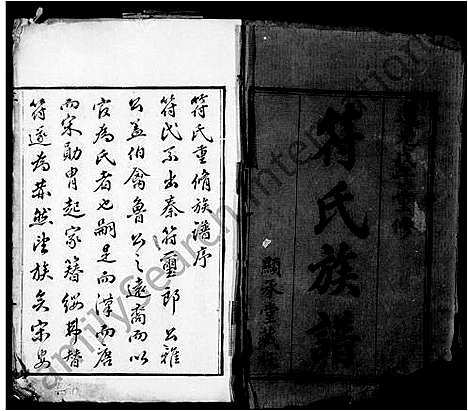 符氏族譜
顯承堂藏
符氏重脩族譜序
符氏系出秦符璽郎公雅
公蓋伯禽魯公之遠裔而以
官為氏者也嗣是而漢而唐
而宋勛冑起家簪纓弗替
符遂為蔚然望族矣宋
FamilySearch International